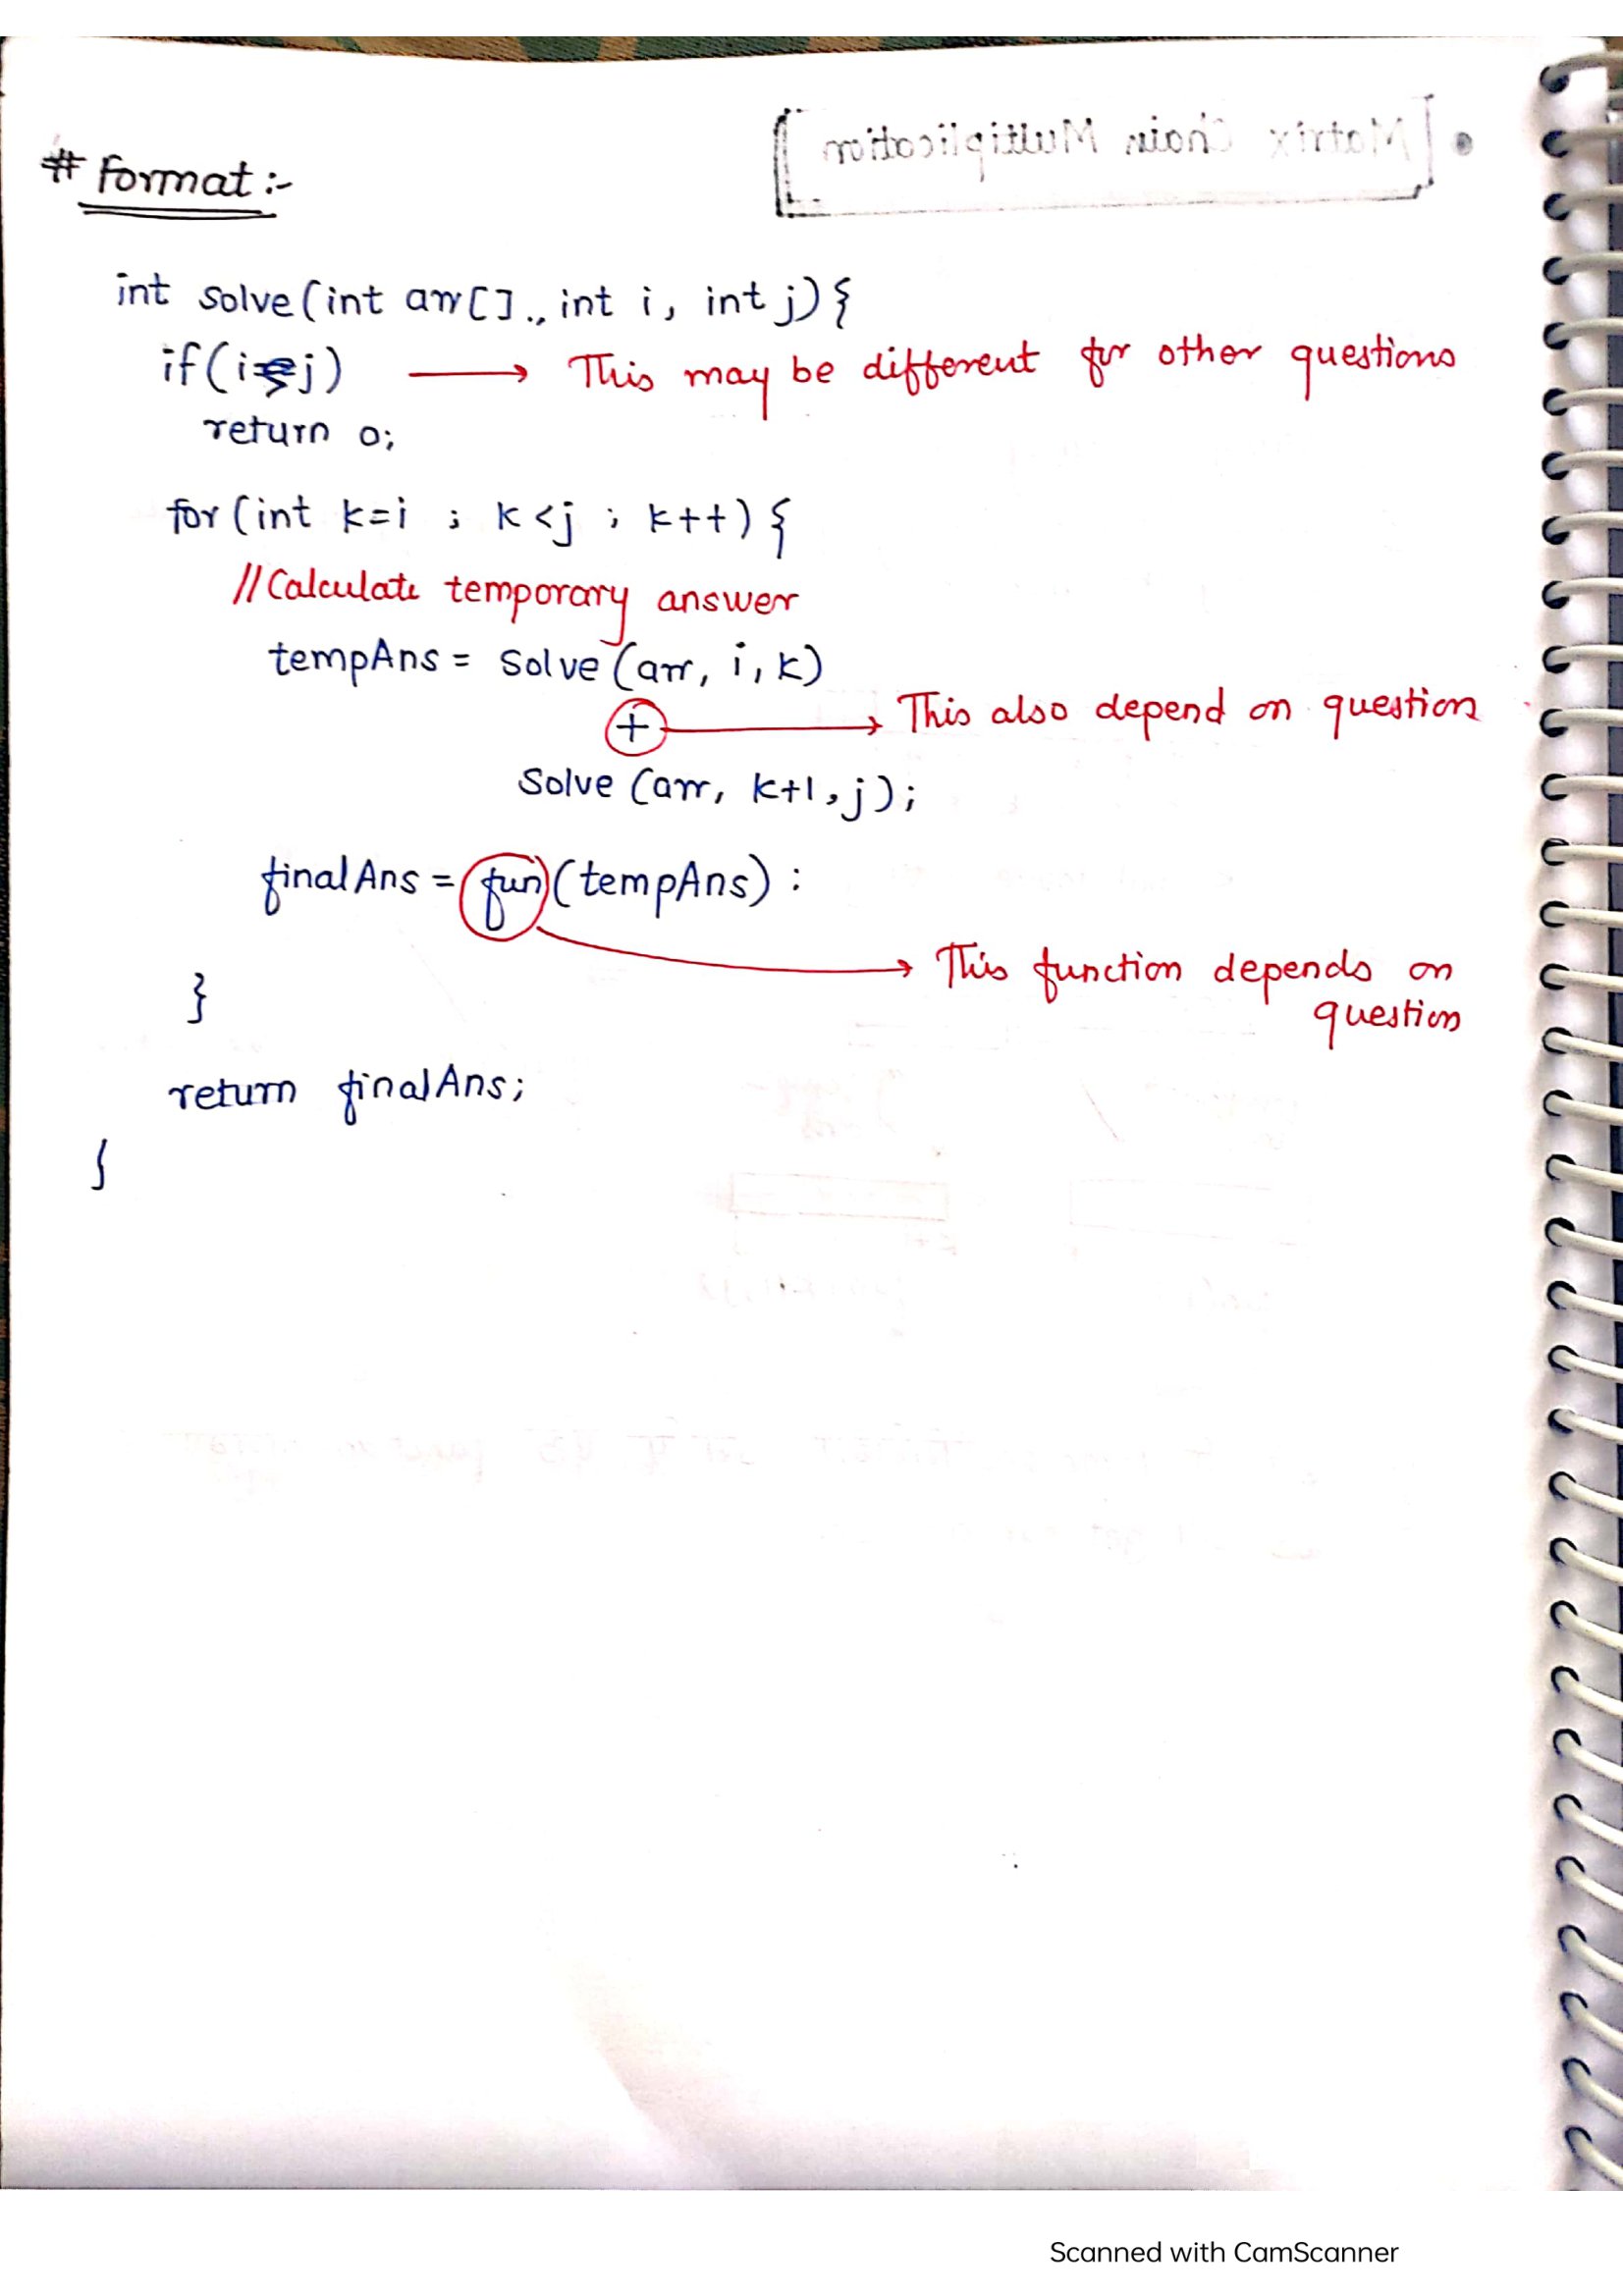 # Format :-
int solve(int arr[]., int i, int j){
if(i j) → This may be different for other questions
return 0;
for(int k=i ; k<j ; k++){
//Calculate temporary answer
tempAns = solve(arr, i, k)
+ → This also depend on question
Solve (arr, k+1, j);
finalAns = fun(tempAns) :
→ This function depends on
question
}
return finalAns;
}
Scanned with CamScanner